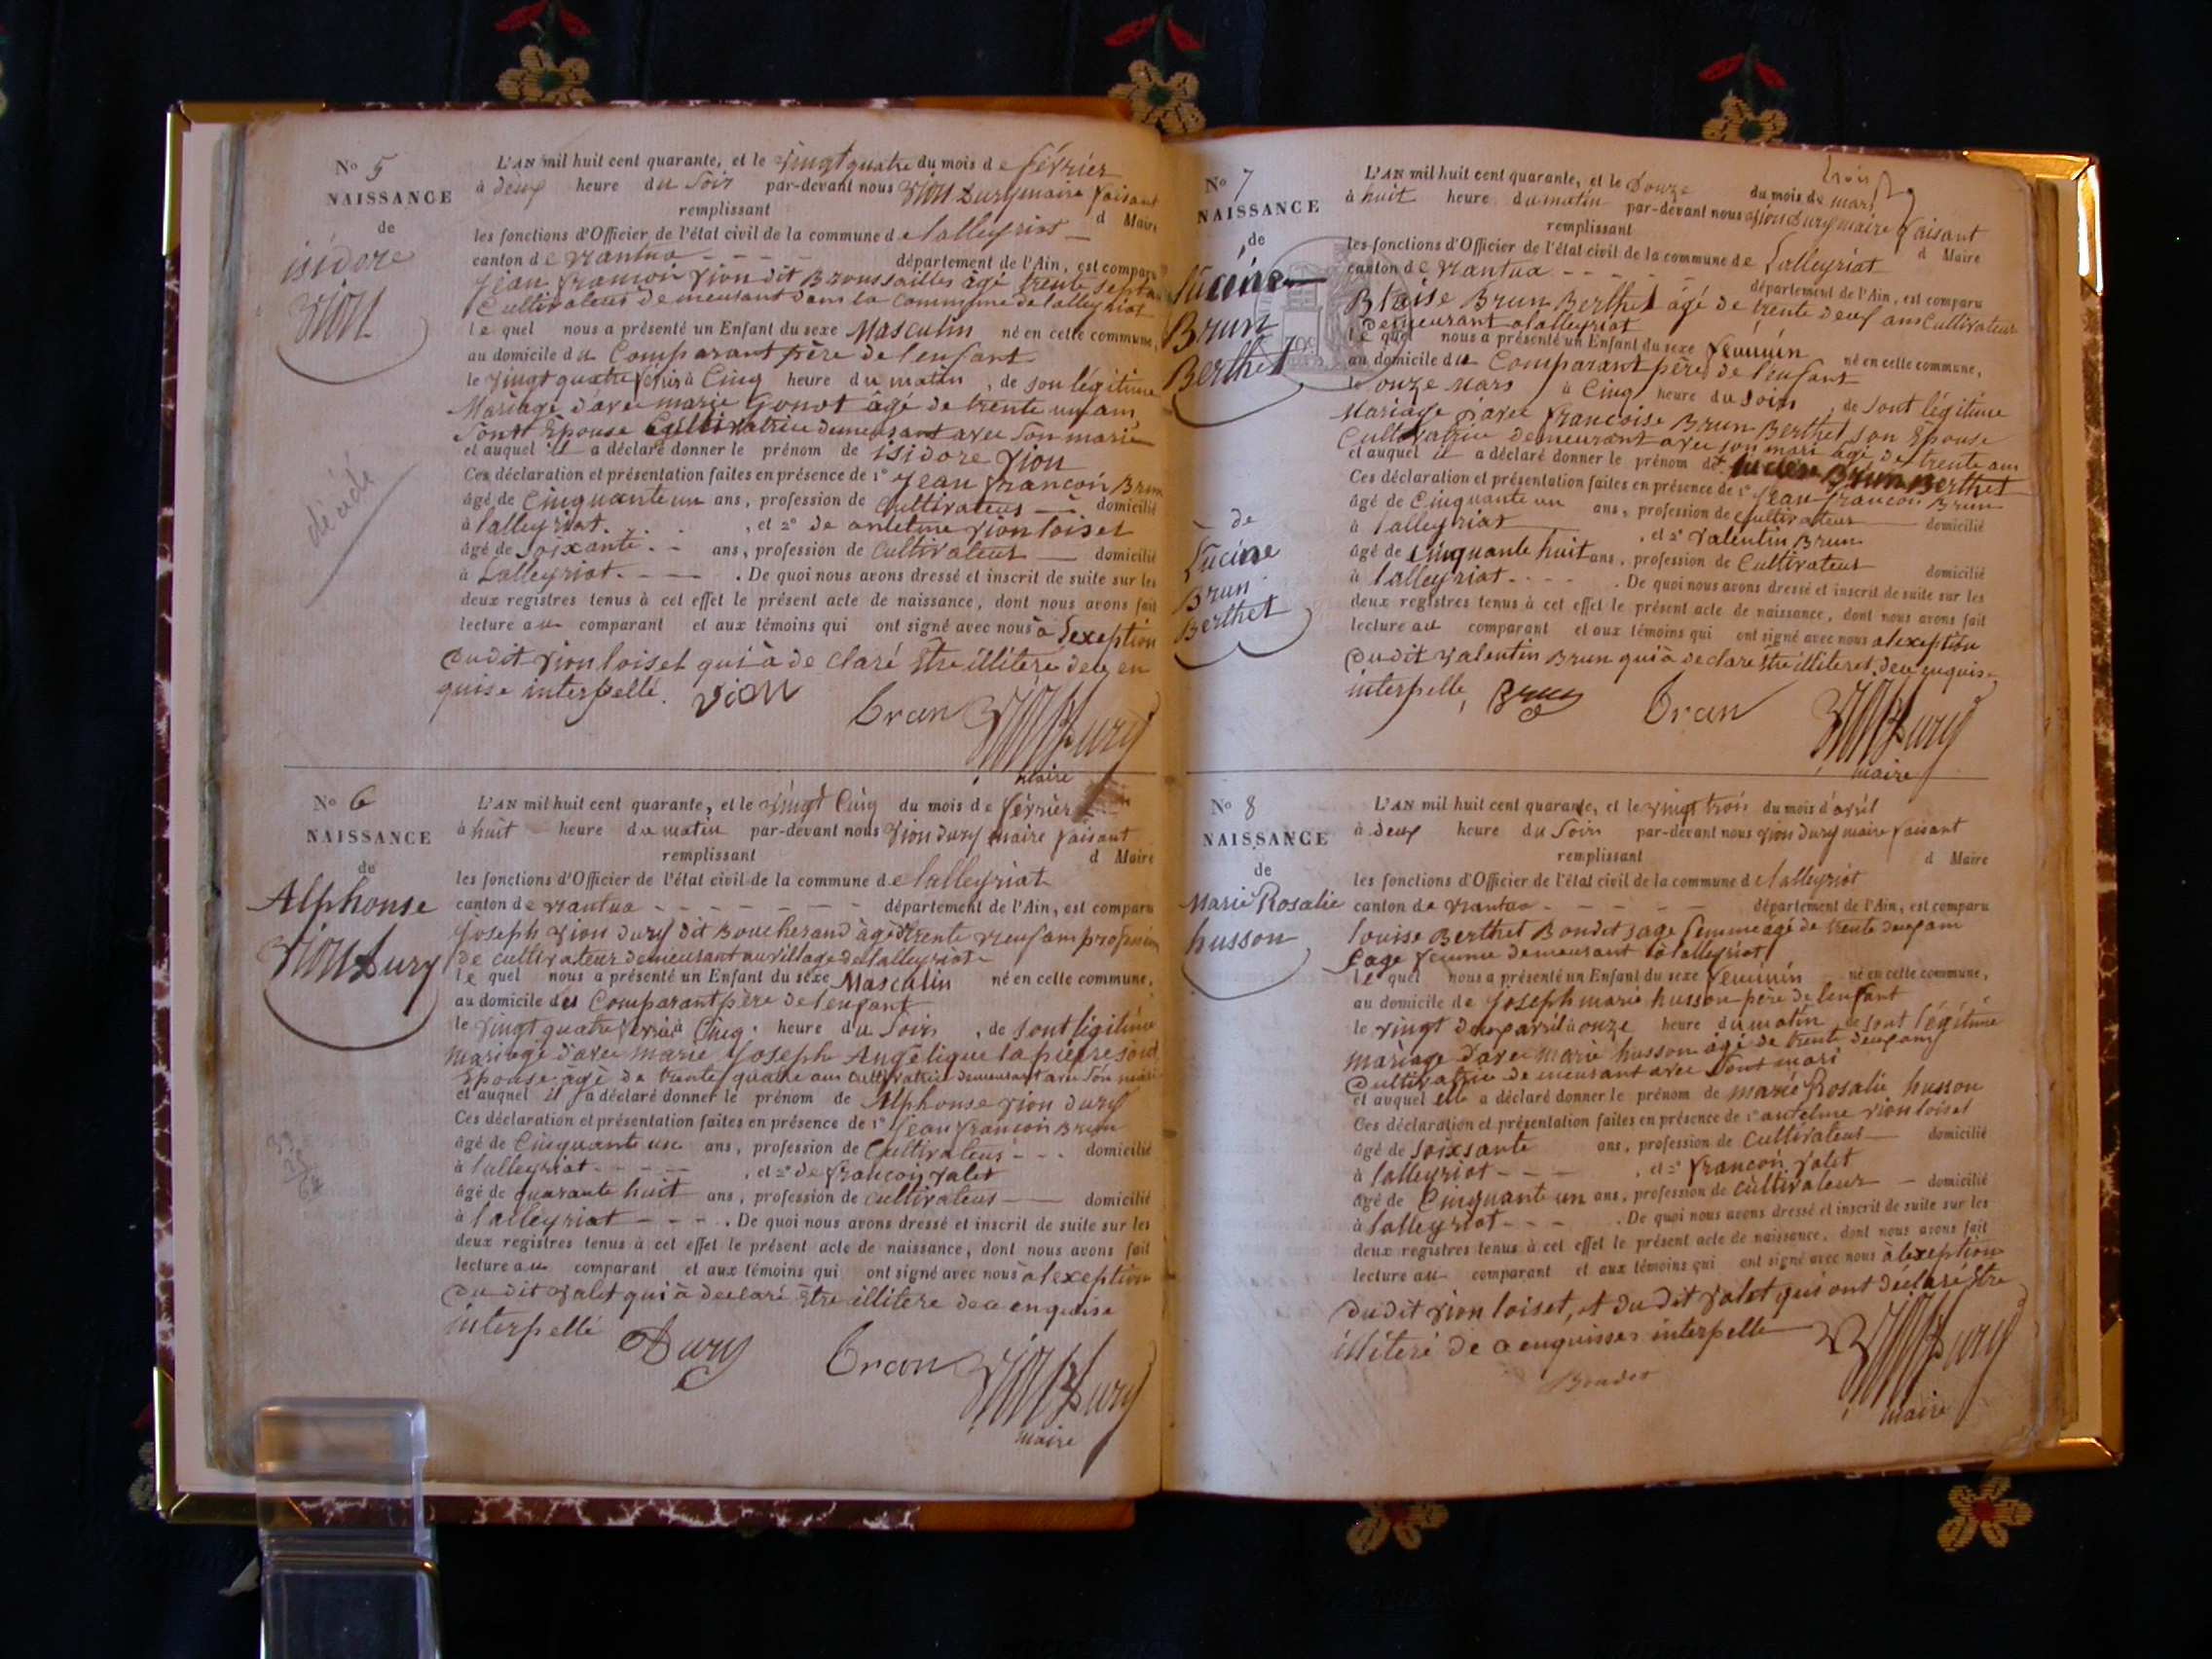 N.o 5
NAISSANCE
de
isidore
vion
décédé
L'AN mil huit cent quarante, et le vingt quatre du mois de février
à deux heure du soir par-devant nous vion Dury maire faisant
remplissant d Maire
les fonctions d'Officier de l'état civil de la commune de lalleyriat
canton de Nantua département de l'Ain, est comparu
jean françois vion dit Broussailles âgé trente sept an
Cultivateur demeurant dans la commune de lalleyriat
le quel nous a présenté un Enfant du sexe Masculin né en cette commune,
au domicile du Comparant père de l'enfant
le vingt quatre à Cinq heure du matin, de son légitime
Mariage d'avec marie Gonot âgé de trente un ans
Sont Epouse Cultivatrice demeurant avec son marie
et auquel il a déclaré donner le prénom de isidore vion
Ces déclaration et présentation faites en présence de 1° jean françois Brun
âgé de Cinquante un ans, profession de Cultivateur domicilié
à lalleyriat, et 2° de antelme vion loiset
âgé de soixante ans, profession de Cultivateur domicilié
à Lalleyriat. De quoi nous avons dressé et inscrit de suite sur les
deux registres tenus à cet effet le présent acte de naissance, dont nous avons fait
lecture au comparant et aux témoins qui ont signé avec nous à l'exeption
Dudit vion loiset qui à de claré être illiteré de ce en
quise interpellé. vion
brun vion Dury
maire
N.o 6
NAISSANCE
de
Alphonse
vion Dury
L'AN mil huit cent quarante, et le vingt Cinq du mois de février
à huit heure du matin par-devant nous vion Dury maire faisant
remplissant d Maire
les fonctions d'Officier de l'état civil de la commune de lalleyriat
canton de Nantua département de l'Ain, est comparu
joseph vion Dury dit Boucherand âgé trente neuf am profession
de cultivateur demeurant au village de lalleyriat
le quel nous a présenté un Enfant du sexe Masculin né en cette commune,
au domicile du Comparant père de lenfant
le vingt quatre à Cinq heure du Soir, de sont légitime
mariage d'avec marie joseph Angélique lapierre sont
Epouse âgé de trente quatre ans cultivatrice demeurant avec son mari
et auquel il a déclaré donner le prénom de Alphonse vion Dury
Ces déclaration et présentation faites en présence de 1° jean françois Brun
âgé de Cinquante un ans, profession de Cultivateur domicilié
à lalleyriat, et 2° de françois valet
âgé de quarante huit ans, profession de cultivateur domicilié
à lalleyriat. De quoi nous avons dressé et inscrit de suite sur les
deux registres tenus à cet effet le présent acte de naissance, dont nous avons fait
lecture au comparant et aux témoins qui ont signé avec nous à lexeption
Du dit valet qui à declaré être illitere de ce enquise
interpellé Dury brun vion Dury
maire
N.o 7
NAISSANCE
de
Lucine
Brun
Berthet
de
Lucine
Brun
Berthet
trois
L'AN mil huit cent quarante, et le Douze du mois de mars
à huit heure du matin par-devant nous vion Dury maire faisant
remplissant d Maire
les fonctions d'Officier de l'état civil de la commune de Lalleyriat
canton de Nantua département de l'Ain, est comparu
Blaise Brun Berthet âgé de trente deux ans Cultivateur
Demeurant a lalleyriat
le quel nous a présenté un Enfant du sexe feminin né en cette commune,
au domicile du Comparant père de l'enfant
le onze Mars à Cinq heure du soir, de sont légitime
Mariage d'avec francoise Brun Berthet son Epouse
Cultivatrice demeurant avec son mari âgé de trente ans
et auquel il a déclaré donner le prénom de Brun Berthet
Ces déclaration et présentation faites en présence de 1° jean françois Brun
âgé de Cinquante un ans, profession de cultivateur domicilié
à lalleyriat, et 2° valentin Brun
âgé de Cinquante huit ans, profession de Cultivateur domicilié
à lalleyriat. De quoi nous avons dressé et inscrit de suite sur les
deux registres tenus à cet effet le présent acte de naissance, dont nous avons fait
lecture au comparant et aux témoins qui ont signé avec nous a lexeption
Dudit valentin Brun qui à declaré être illiteret de ce enquise
interpelle, brun vion Dury
maire
N.o 8
NAISSANCE
de
Marie Rosalie
husson
L'AN mil huit cent quarante, et le vingt trois du mois d'avril
à deux heure du Soir par-devant nous vion Dury maire faisant
remplissant d Maire
les fonctions d'Officier de l'état civil de la commune de lalleyriat
canton de Nantua département de l'Ain, est comparu
louise Berthet Bondet sage femme âgé de trente deux am
sage femme demeurant à lalleyriat
le quel nous a présenté un Enfant du sexe feminin né en cette commune,
au domicile de joseph marie husson père de lenfant
le vingt deux avril à onze heure du matin de sont légitime
mariage d'avec marie husson âgé de trente deux ans
Cultivatrice demeurant avec sont mari
et auquel elle a déclaré donner le prénom de marie Rosalie husson
Ces déclaration et présentation faites en présence de 1° antelme vion loiset
âgé de soixsante ans, profession de cultivateur domicilié
à lalleyriat, et 2° françois valet
âgé de Cinquante un ans, profession de cultivateur domicilié
à lalleyriat. De quoi nous avons dressé et inscrit de suite sur les
deux registres tenus à cet effet le présent acte de naissance, dont nous avons fait
lecture au comparant et aux témoins qui ont signé avec nous à lexeption
Dudit vion loiset, et du dit valet qui ont déclaré être
illiteré de ce enquisses interpelle vion Dury
Bondet maire